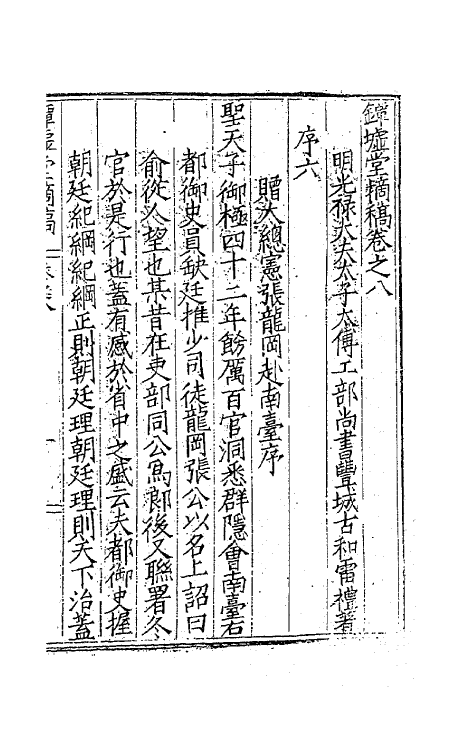 鐔墟堂摘稿卷之八
明光祿大夫太子太傅工部尚書豐城古和雷禮著
序六
贈大總憲張龍岡赴南臺序
聖天子御極四十二年飭厲百官洞悉群隱會南臺右
都御史員缺廷推少司徒龍岡張公以名上詔曰
俞從公望也某昔在吏部同公為郎後又聯署冬
官於是行也蓋有感於省中之盛云夫都御史握
朝廷紀綱紀綱正則朝廷理朝廷理則天下治蓋